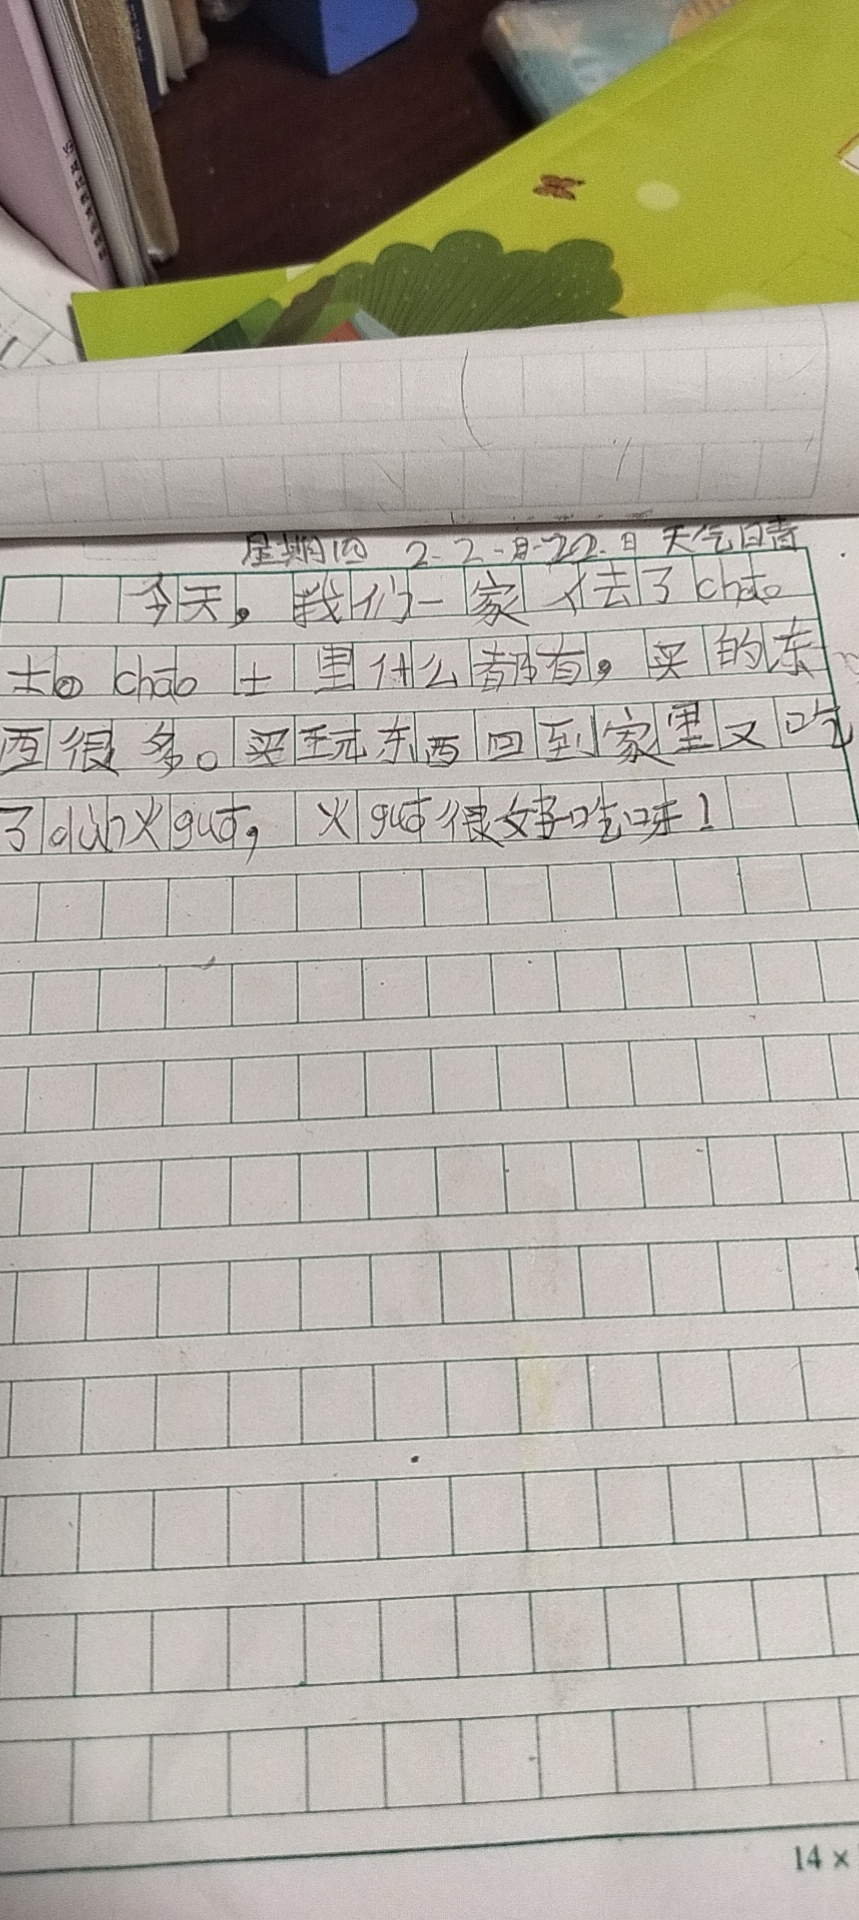 星期四 2-2-月-22.日 天气日青
今天，我们一家人去了chāo
士。chāo士里什么都有，买的东
西很多。买玩东西回到家里又吃
了dùn火guō，火guō很好吃呀！
14×